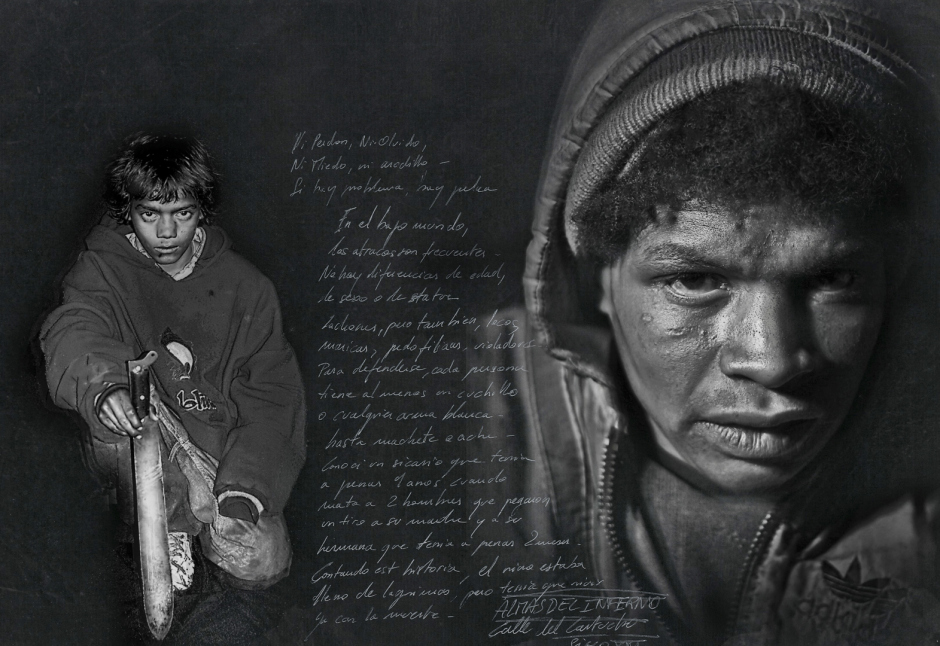 Ni Perdon, Ni Olvido,
Ni Miedo, ni arodillo –
Si hay problema, hay pelea
En el bajo mundo,
los atracos son frecuentes –
No hay diferencias de edad,
de sexo o de status
Ladrones, pero tambien, locos
maricas, pedofilias, violadores
Para defenderse, cada persona
tiene al menos un cuchillo
o cualquier arma blanca –
hasta machete o acha –
Conoci un sicario que tenia
a penas 9 anos cuando
mata a 2 hombres que pegaron
un tiro a su madre y a su
hermana que tenia a penas 2 meses –
Contando est historia, el nino estaba
lleno de lagrimas, pero tenia que vivir
ya con la muerte –
ALMAS DEL INFERNO
Calle del Cartucho
adidas